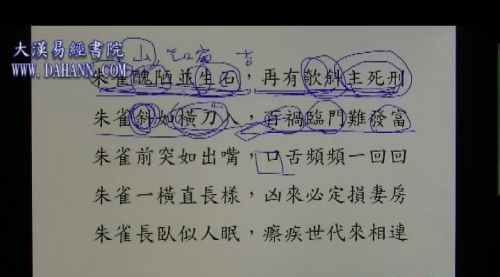 大漢易經書院
WWW.DAHANN.COM
山
朱雀醜陋並生石，再有欹斜主死刑
朱雀斜如橫刀人，百禍臨門難發富
朱雀前突如出嘴，口舌頻頻一回回
朱雀一橫直長樣，凶來必定損妻房
朱雀長臥似人眠，瘵疾世代來相連